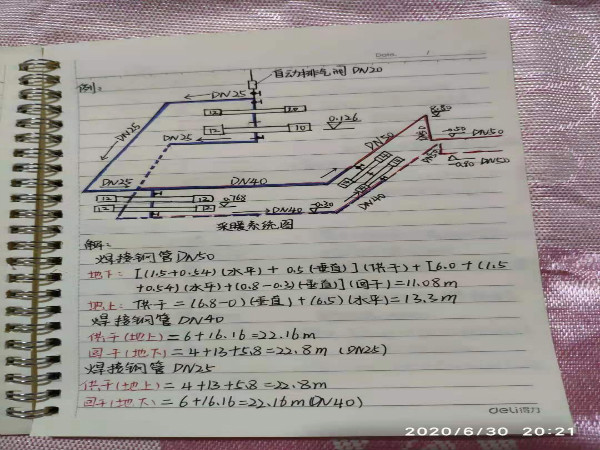 Date. /
例:
自动排气阀 DN20
DN25
12 10
DN25
12 10
0.126
DN50
6.80
DN50
-0.50 DN50
DN50
-0.80 DN50
DN25
DN25
DN40
DN40
12 12
12 12
0.768
DN40
-0.30
采暖系统图
解:
焊接钢管 DN50
地下: [(1.5+0.54)(水平) + 0.5(垂直)](供干) + [6.0 + (1.5
+0.54)(水平)+(0.8-0.3)(垂直)](回干)=11.08m
地上: 供干 = (6.8-0)(垂直) + (6.5)(水平) = 13.3m
焊接钢管 DN40
供干(地上) = 6+16.16=22.16m
回干(地下) = 4+13+5.8=22.8m (DN25)
焊接钢管 DN25
供干(地上) = 4+13+5.8=22.8m
回干(地下) = 6+16.16=22.16m(DN40)
deli得力
2020/6/30 20:21